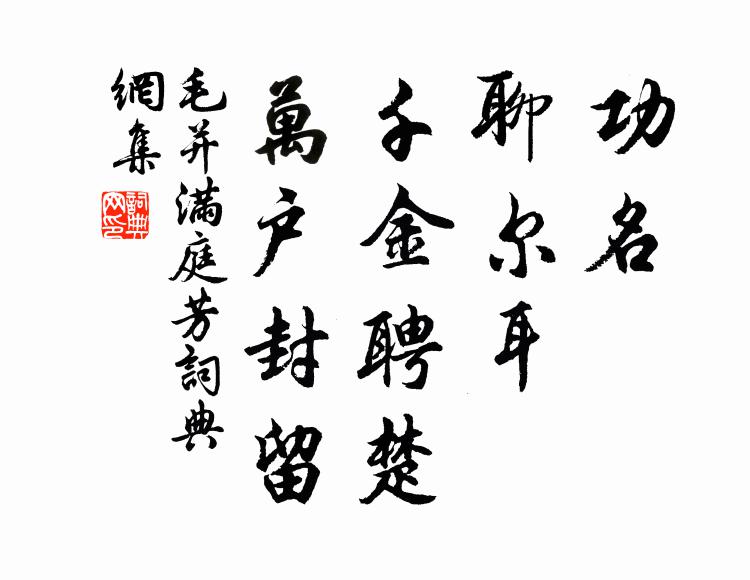 功名
聊尔耳
千金聘楚
萬户封留
毛并滿庭芳詞典
網集
詞典
网印